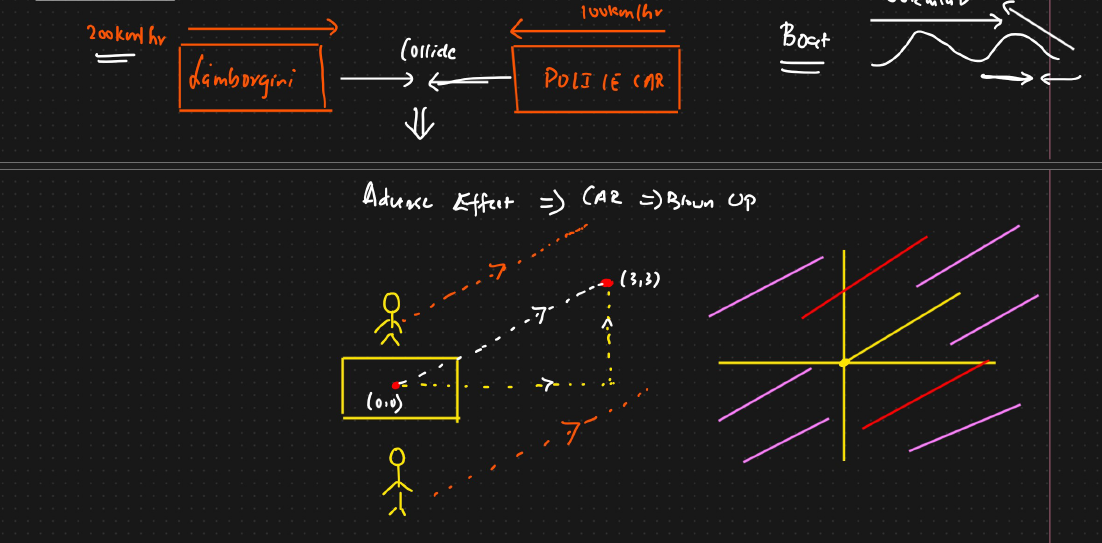 200km/hr
100km/hr
Lamborgini
Collide
POLICE CAR
Boat
Adverse Effect => CAR => Blown Up
(3,3)
(0,0)